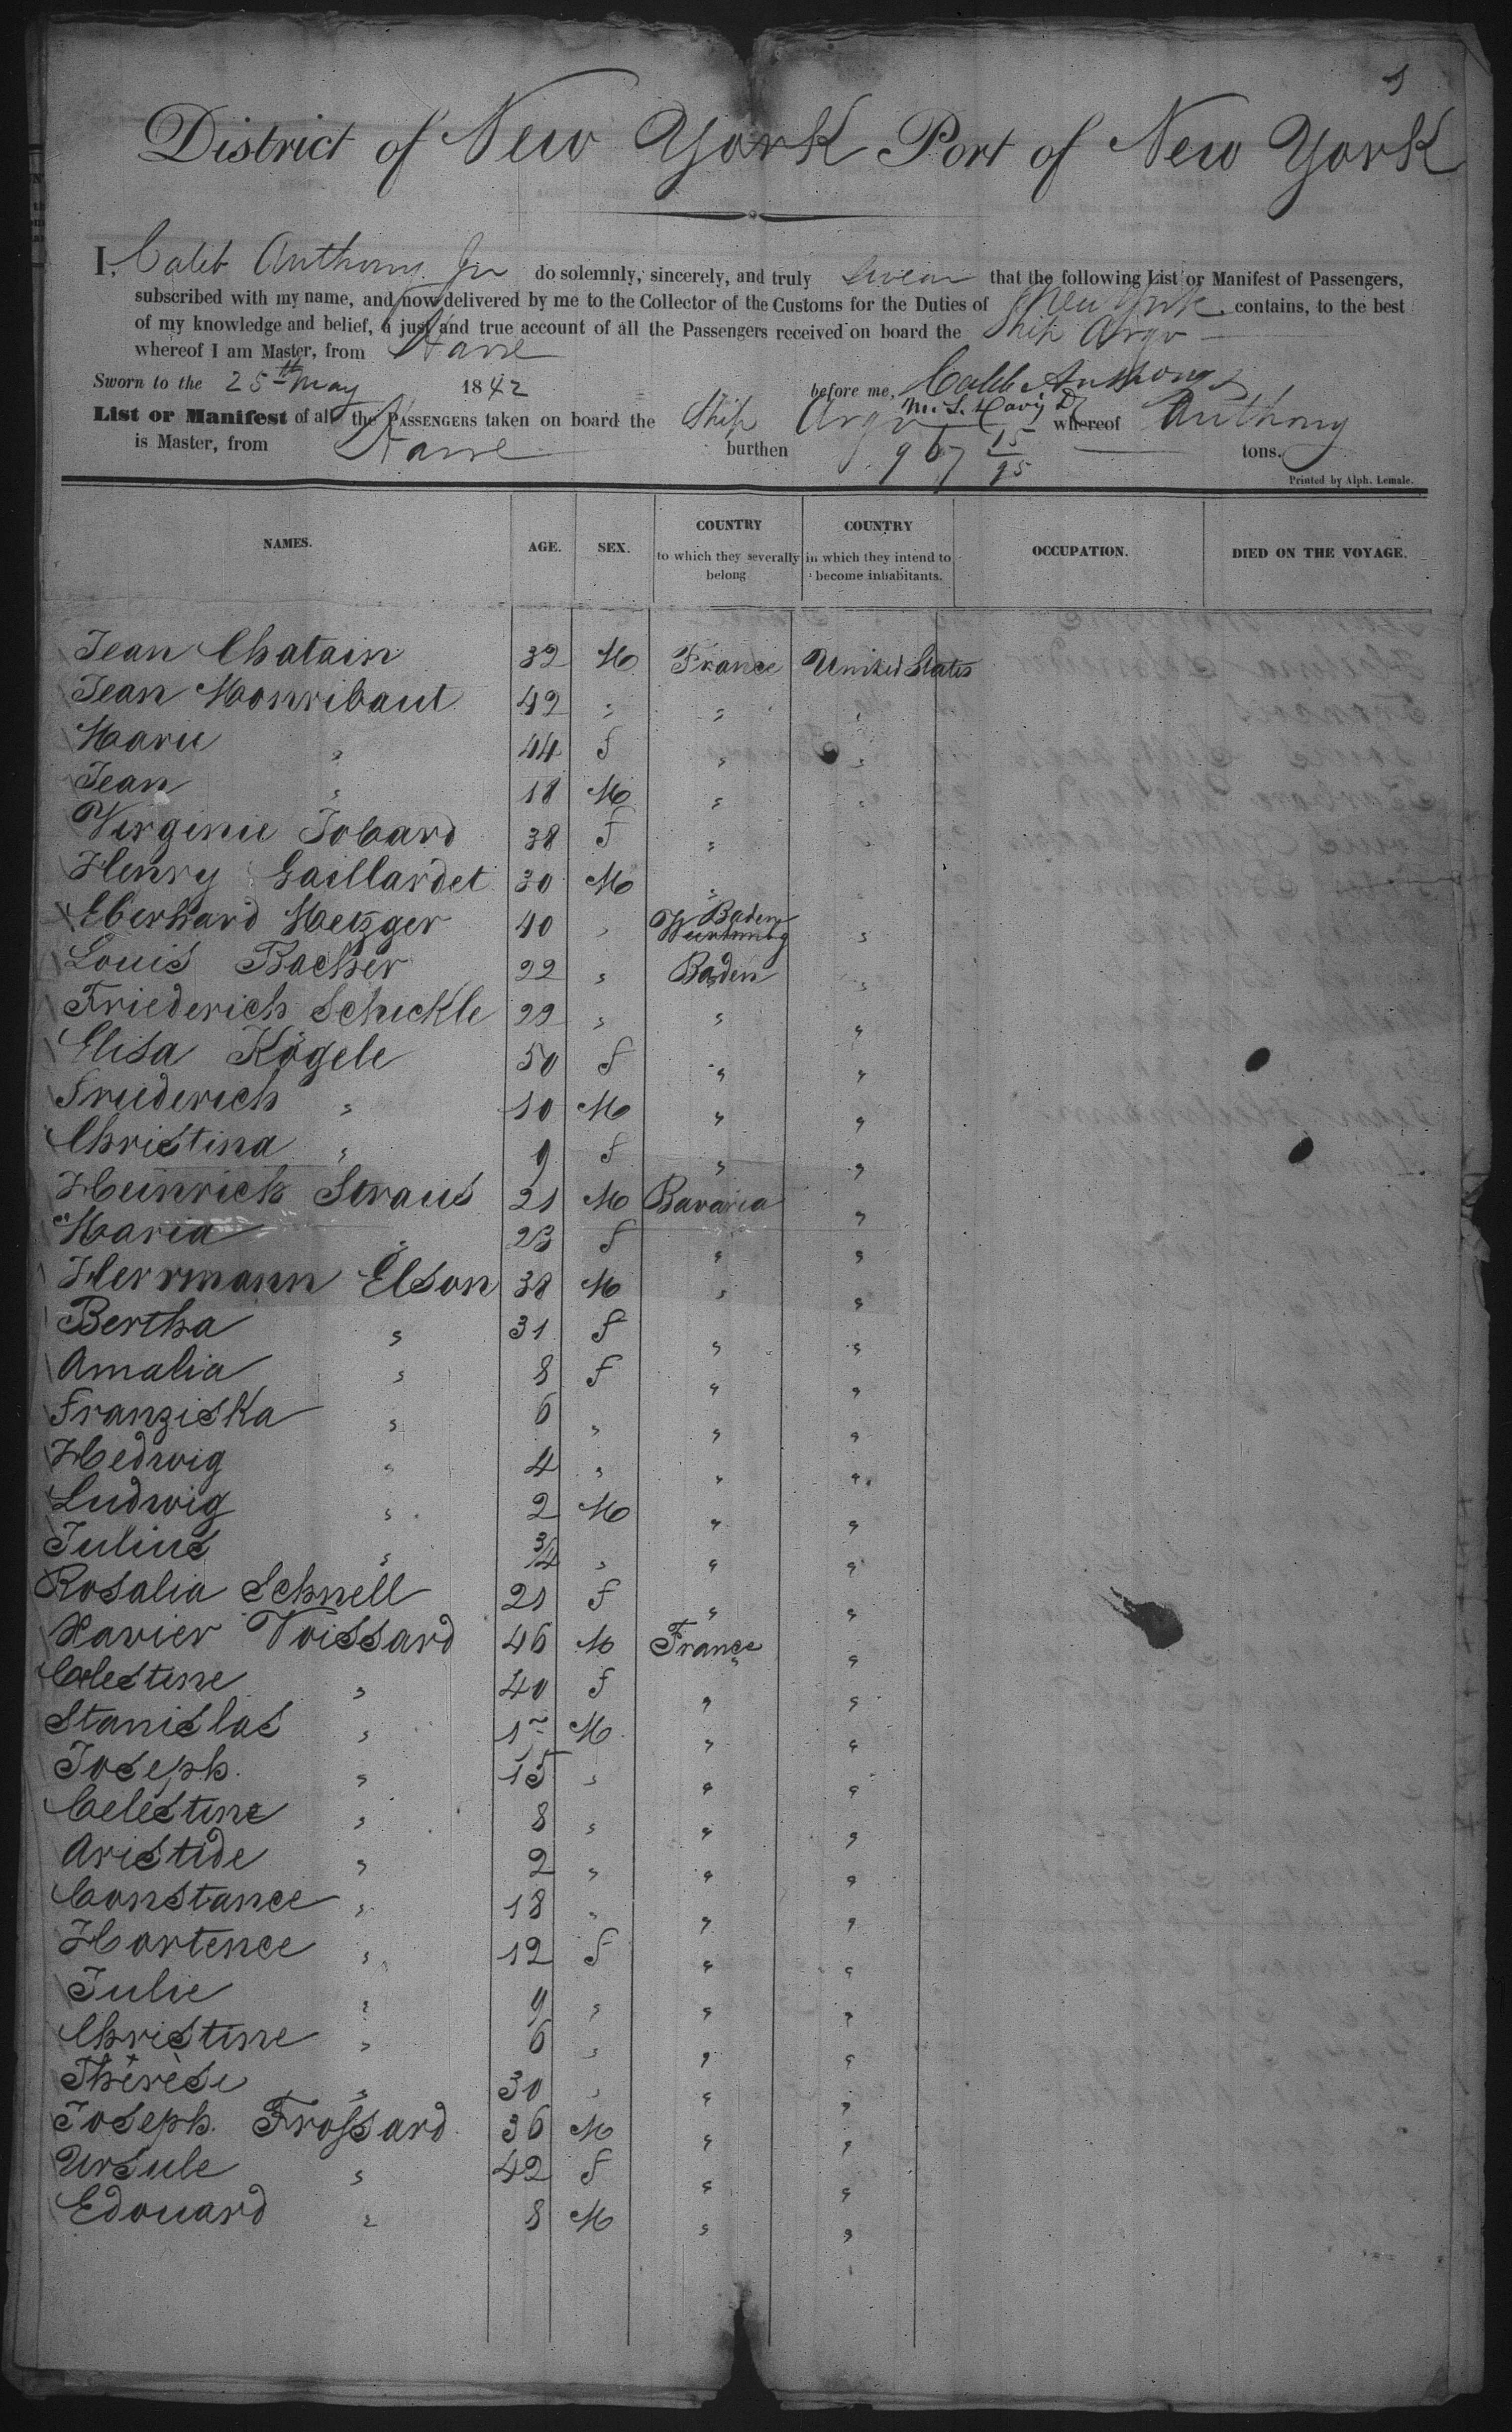 District of New York Port of New York
I, Caleb Anthony Jr do solemnly, sincerely, and truly swear that the following List or Manifest of Passengers,
subscribed with my name, and now delivered by me to the Collector of the Customs for the Duties of New York contains, to the best
of my knowledge and belief, a just and true account of all the Passengers received on board the Ship Argo
whereof I am Master, from Havre
Sworn to the 25th May 1842 before me, Caleb Anthony
List or Manifest of all the PASSENGERS taken on board the Ship Argo whereof Anthony
is Master, from Havre burthen 967 15/95 tons.
Printed by Alph. Lemale.
NAMES. AGE. SEX. COUNTRY to which they severally belong COUNTRY in which they intend to become inhabitants. OCCUPATION. DIED ON THE VOYAGE.
Jean Chatain 32 M France United States
Jean Monribaut 42 " " "
Marie " 44 f " "
Jean " 18 M " "
Virginie Jobard 38 f " "
Henry Gaillardet 30 M " "
Eberhard Metzger 40 " Baden Wurtmbg "
Louis Bacher 22 " Baden "
Friederich Schickle 22 " " "
Elisa Kögele 50 f " "
Friederich " 10 M " "
Christina " 9 f " "
Heinrich Straus 21 M Bavaria "
Maria " 23 f " "
Herrmann Elson 38 M " "
Bertha " 31 f " "
Amalia " 8 f " "
Franziska " 6 " " "
Hedwig " 4 " " "
Ludwig " 2 M " "
Julius " 3/4 " " "
Rosalia Schnell 21 f " "
Xavier Voissard 46 M France "
Celestine " 40 f " "
Stanislas " M " "
Joseph " 15 " " "
Celestine " 8 " " "
Aristide " 2 " " "
Constance " 18 " " "
Hortence " 12 f " "
Julie " 9 " " "
Christine " 6 " " "
Thérèse " 30 " " "
Joseph Frossard 36 M " "
Ursule " 42 f " "
Edouard " 8 M " "